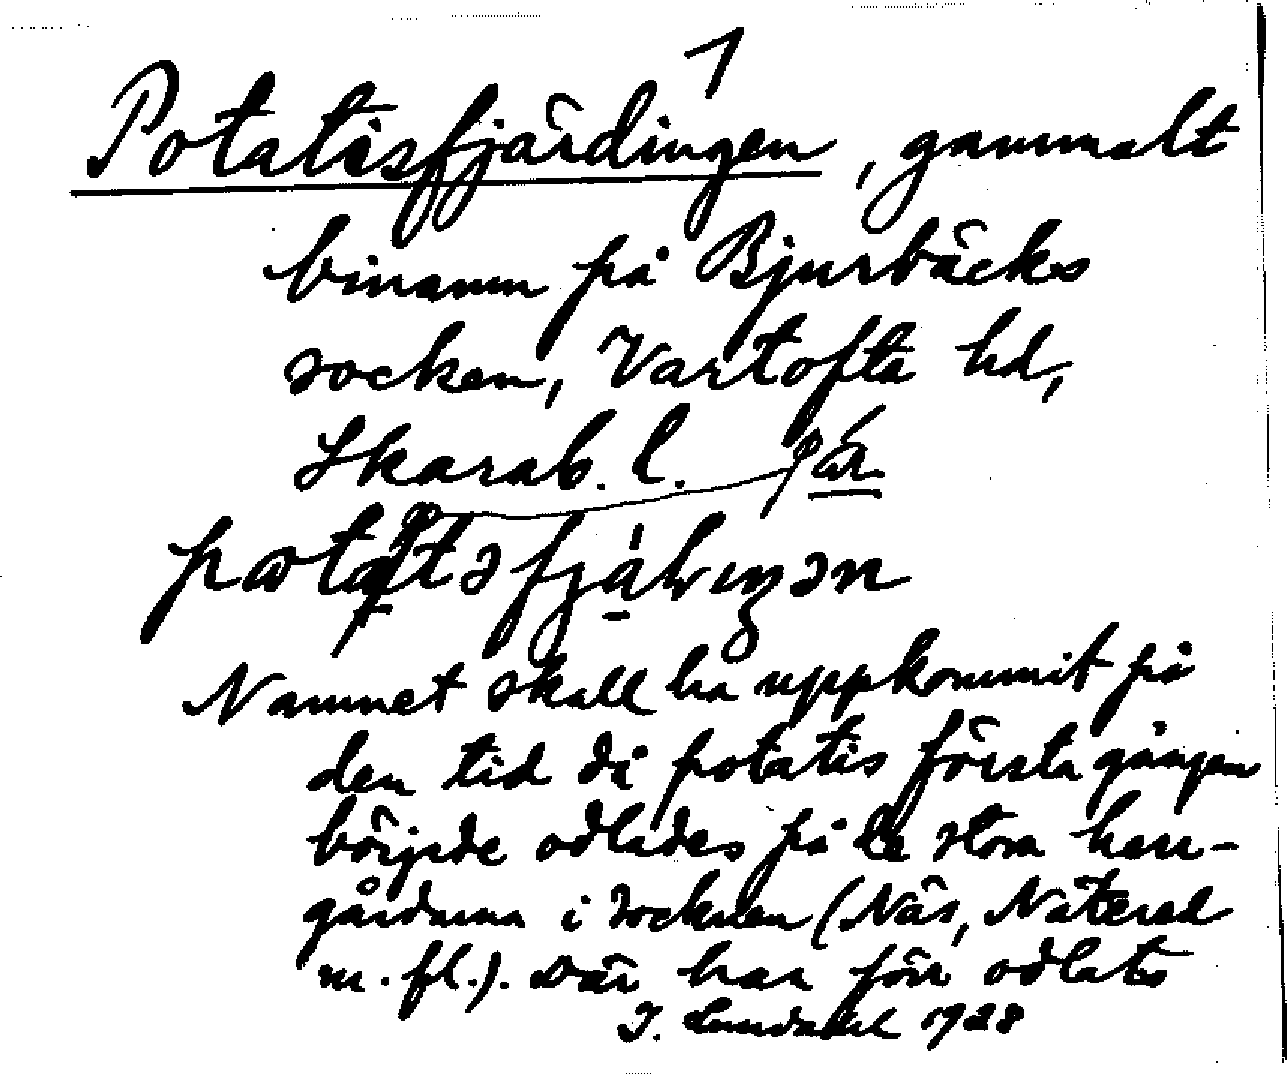 1
Potatisfjärdingen, gammalt
binamn på Bjurbäcks
socken, Vartofta hd,
Skarab. l.
Namnet skall ha uppkommit på
den tid då potatis första gången
började odlades på de stora herr-
gårdarna i socknen (Näs, Nätered
m. fl.). där har förr odlats
I. Lundahl 1928